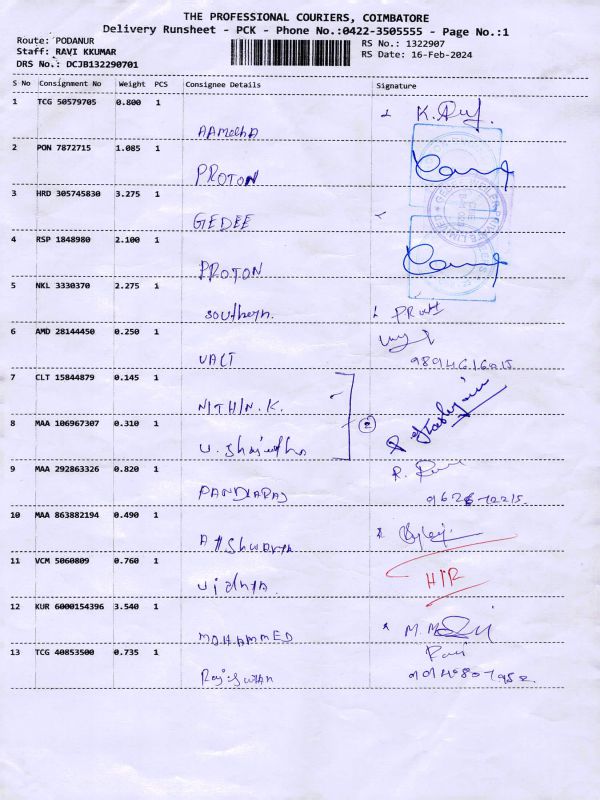 THE PROFESSIONAL COURIERS, COIMBATORE
Delivery Runsheet - PCK - Phone No.:0422-3505555 - Page No.:1
Route: PODANUR
Staff: RAVI KKUMAR
DRS No.: DCJB132290701
RS No.: 1322907
RS Date: 16-Feb-2024
S No Consignment No Weight PCS Consignee Details Signature
1 TCG 50579705 0.800 1
2 PON 7872715 1.085 1
PROTON
3 HRD 305745830 3.275 1
GEDEE
4 RSP 1848980 2.100 1
PROTON
5 NKL 3330370 2.275 1
Southern.
6 AMD 28144450 0.250 1
7 CLT 15844879 0.145 1
NITHIN.K.
2
8 MAA 106967307 0.310 1
9 MAA 292863326 0.820 1
PANDIARAJ
10 MAA 863882194 0.490 1
AIShwarya
11 VCM 5060809 0.760 1
Vidhya.
12 KUR 6000154396 3.540 1
MOHAMMED
13 TCG 40853500 0.735 1
Ravi